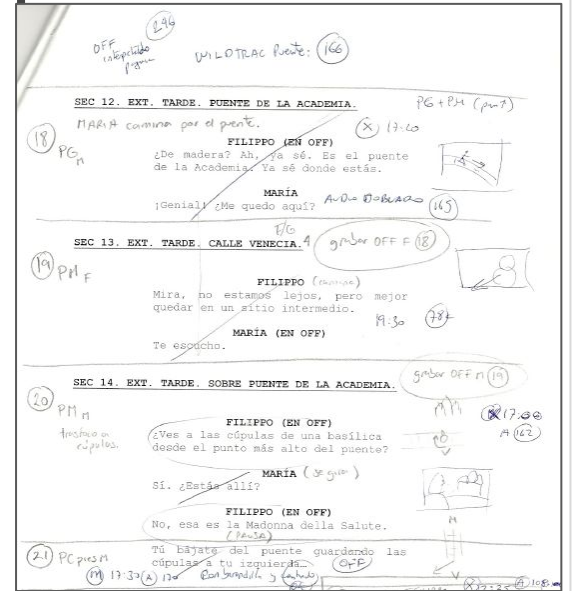 296
OFF
WILDTRAC Puente: 166
SEC 12. EXT. TARDE. PUENTE DE LA ACADEMIA.
PG + PM
MARIA camina por el puente.
X 17:20
18
PG M
FILIPPO (EN OFF)
¿De madera? Ah, ya sé. Es el puente
de la Academia. Ya sé donde estás.
MARÍA
¡Genial! ¿Me quedo aquí?
AUDIO DOBLADO 165
SEC 13. EXT. TARDE. CALLE VENECIA.
grabar OFF F 18
19
PM F
FILIPPO
Mira, no estamos lejos, pero mejor
quedar en un sitio intermedio.
19:30
MARÍA (EN OFF)
Te escucho.
SEC 14. EXT. TARDE. SOBRE PUENTE DE LA ACADEMIA.
grabar OFF M 19
20
PM M
17:00
A 162
FILIPPO (EN OFF)
¿Ves a las cúpulas de una basílica
desde el punto más alto del puente?
cúpulas.
MARÍA
Sí. ¿Estás allí?
FILIPPO (EN OFF)
No, esa es la Madonna della Salute.
(PAUSA)
Tú bájate del puente guardando las
cúpulas a tu izquierda.
(OFF)
21
PC pies M
M 17:30 A 170